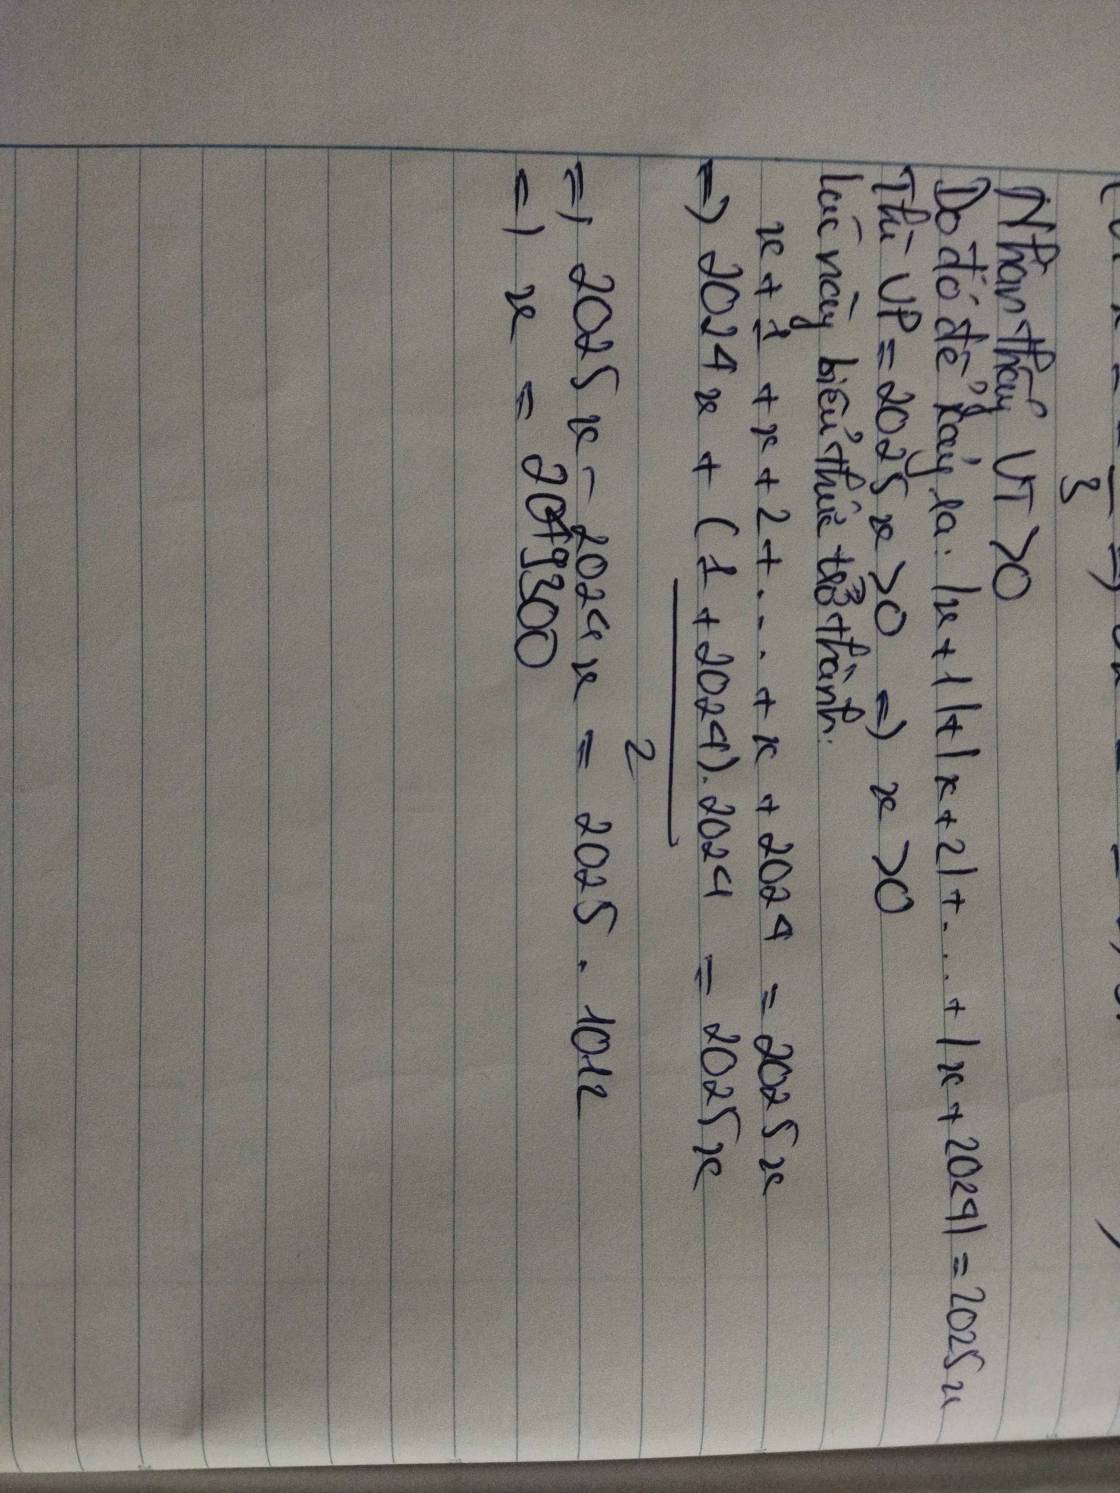 Nhận thấy VT > 0
Do đó để xảy ra: |x+1|+|x+2|+...+|x+2024|=2025x
Thì VP = 2025x > 0 => x > 0
Lúc này biểu thức trở thành:
x + 1 + x + 2 + ... + x + 2024 = 2025x
=> 2024x + (1 + 2024).2024 / 2 = 2025x
=> 2025x - 2024x = 2025 . 1012
=> x = 2049300